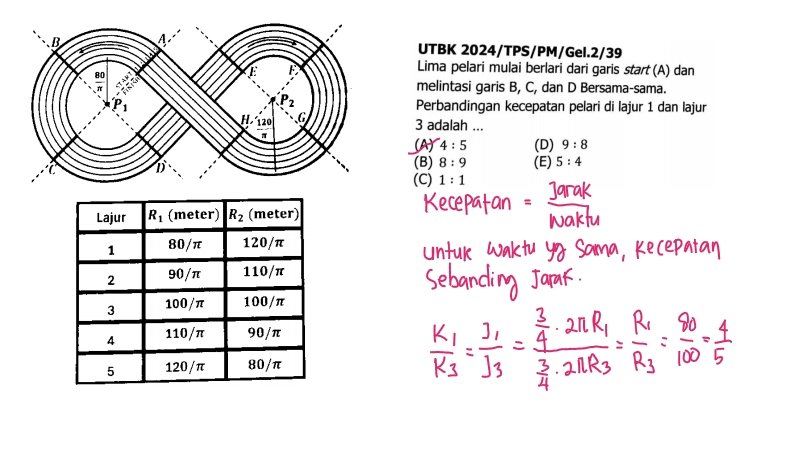 B
A
80
π
START
FINISH
E
F
P₁
P₂
H
120
π
G
C
D
Lajur R₁ (meter) R₂ (meter)
1 80/π 120/π
2 90/π 110/π
3 100/π 100/π
4 110/π 90/π
5 120/π 80/π
UTBK 2024/TPS/PM/Gel.2/39
Lima pelari mulai berlari dari garis start (A) dan
melintasi garis B, C, dan D Bersama-sama.
Perbandingan kecepatan pelari di lajur 1 dan lajur
3 adalah ...
(A) 4 : 5 (D) 9 : 8
(B) 8 : 9 (E) 5 : 4
(C) 1 : 1
Kecepatan = Jarak / Waktu
untuk waktu yg sama, kecepatan
sebanding jarak.
K₁/K₃ = J₁/J₃ = (3/4 · 2πR₁)/(3/4 · 2πR₃) = R₁/R₃ = 80/100 = 4/5